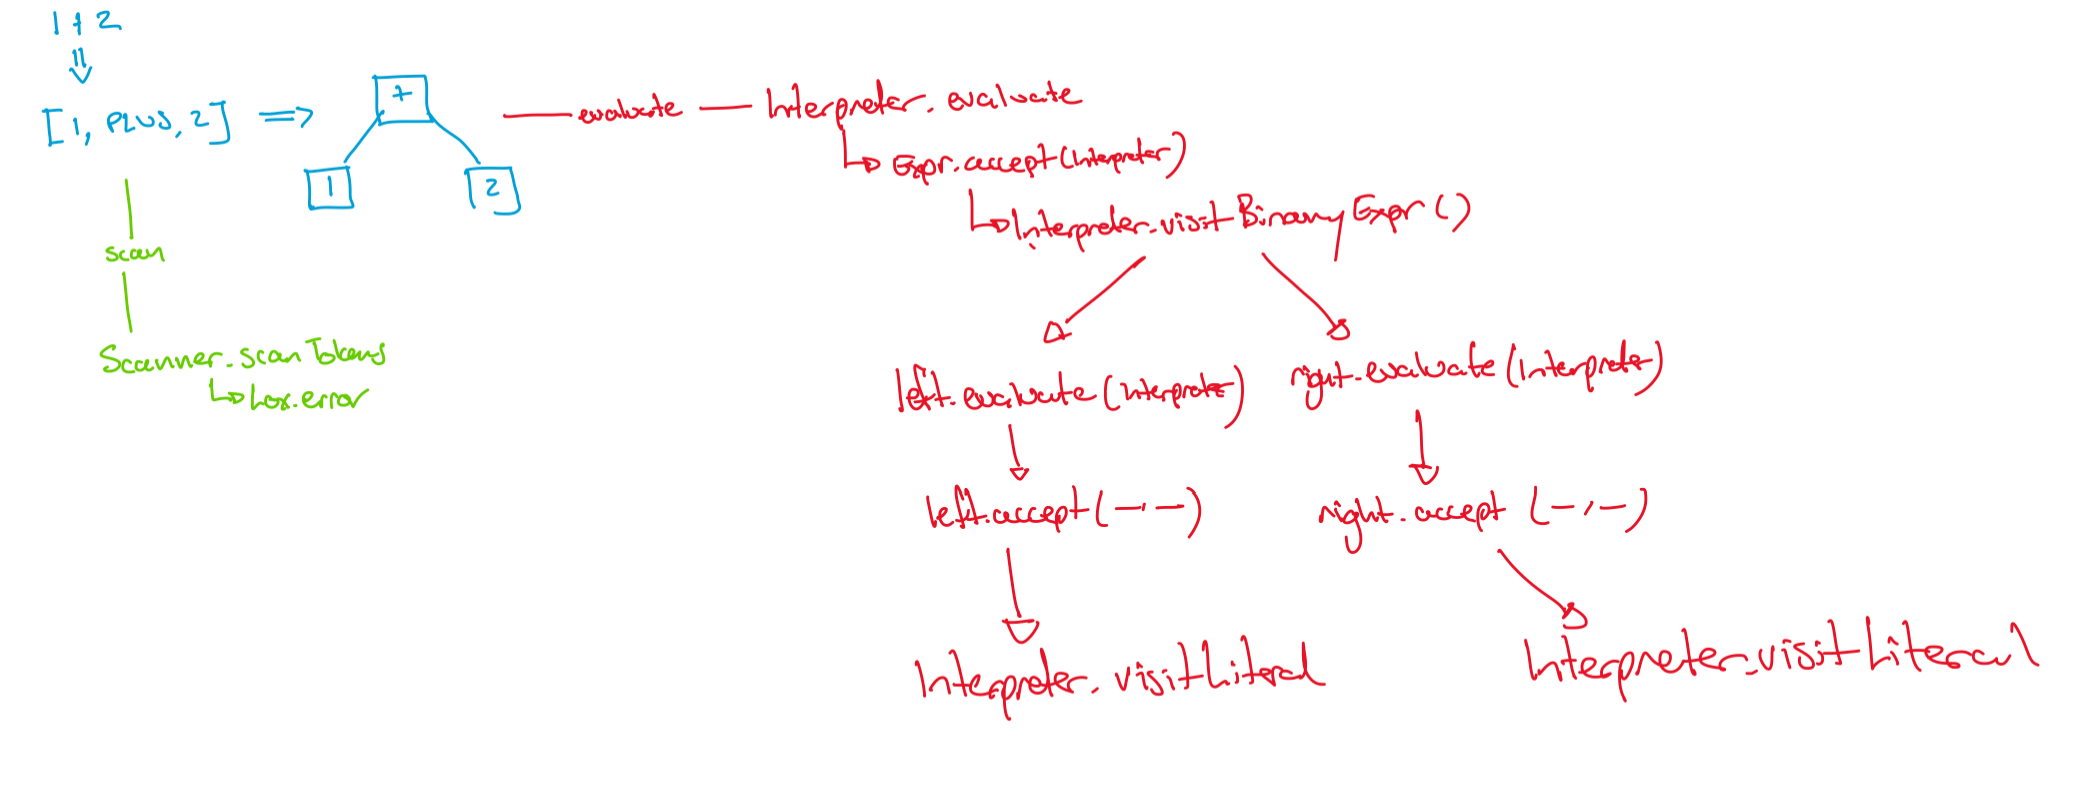 1+2
[1, PLUS, 2]
+
1
2
scan
Scanner.scanTokens
Lox.error
evaluate
Interpreter.evaluate
Expr.accept(Interpreter)
Interpreter.visitBinaryExpr()
left.evaluate(Interpreter)
right.evaluate(Interpreter)
left.accept(—,—)
right.accept(—,—)
Interpreter.visitLiteral
Interpreter.visitLiteral